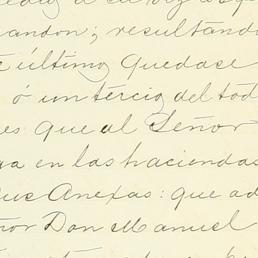 andon; resultando
e último quedase
ó un tercio del tod
es que al Señor
ga en las haciendas
sus Anexas: que ad
ñor Don Manuel